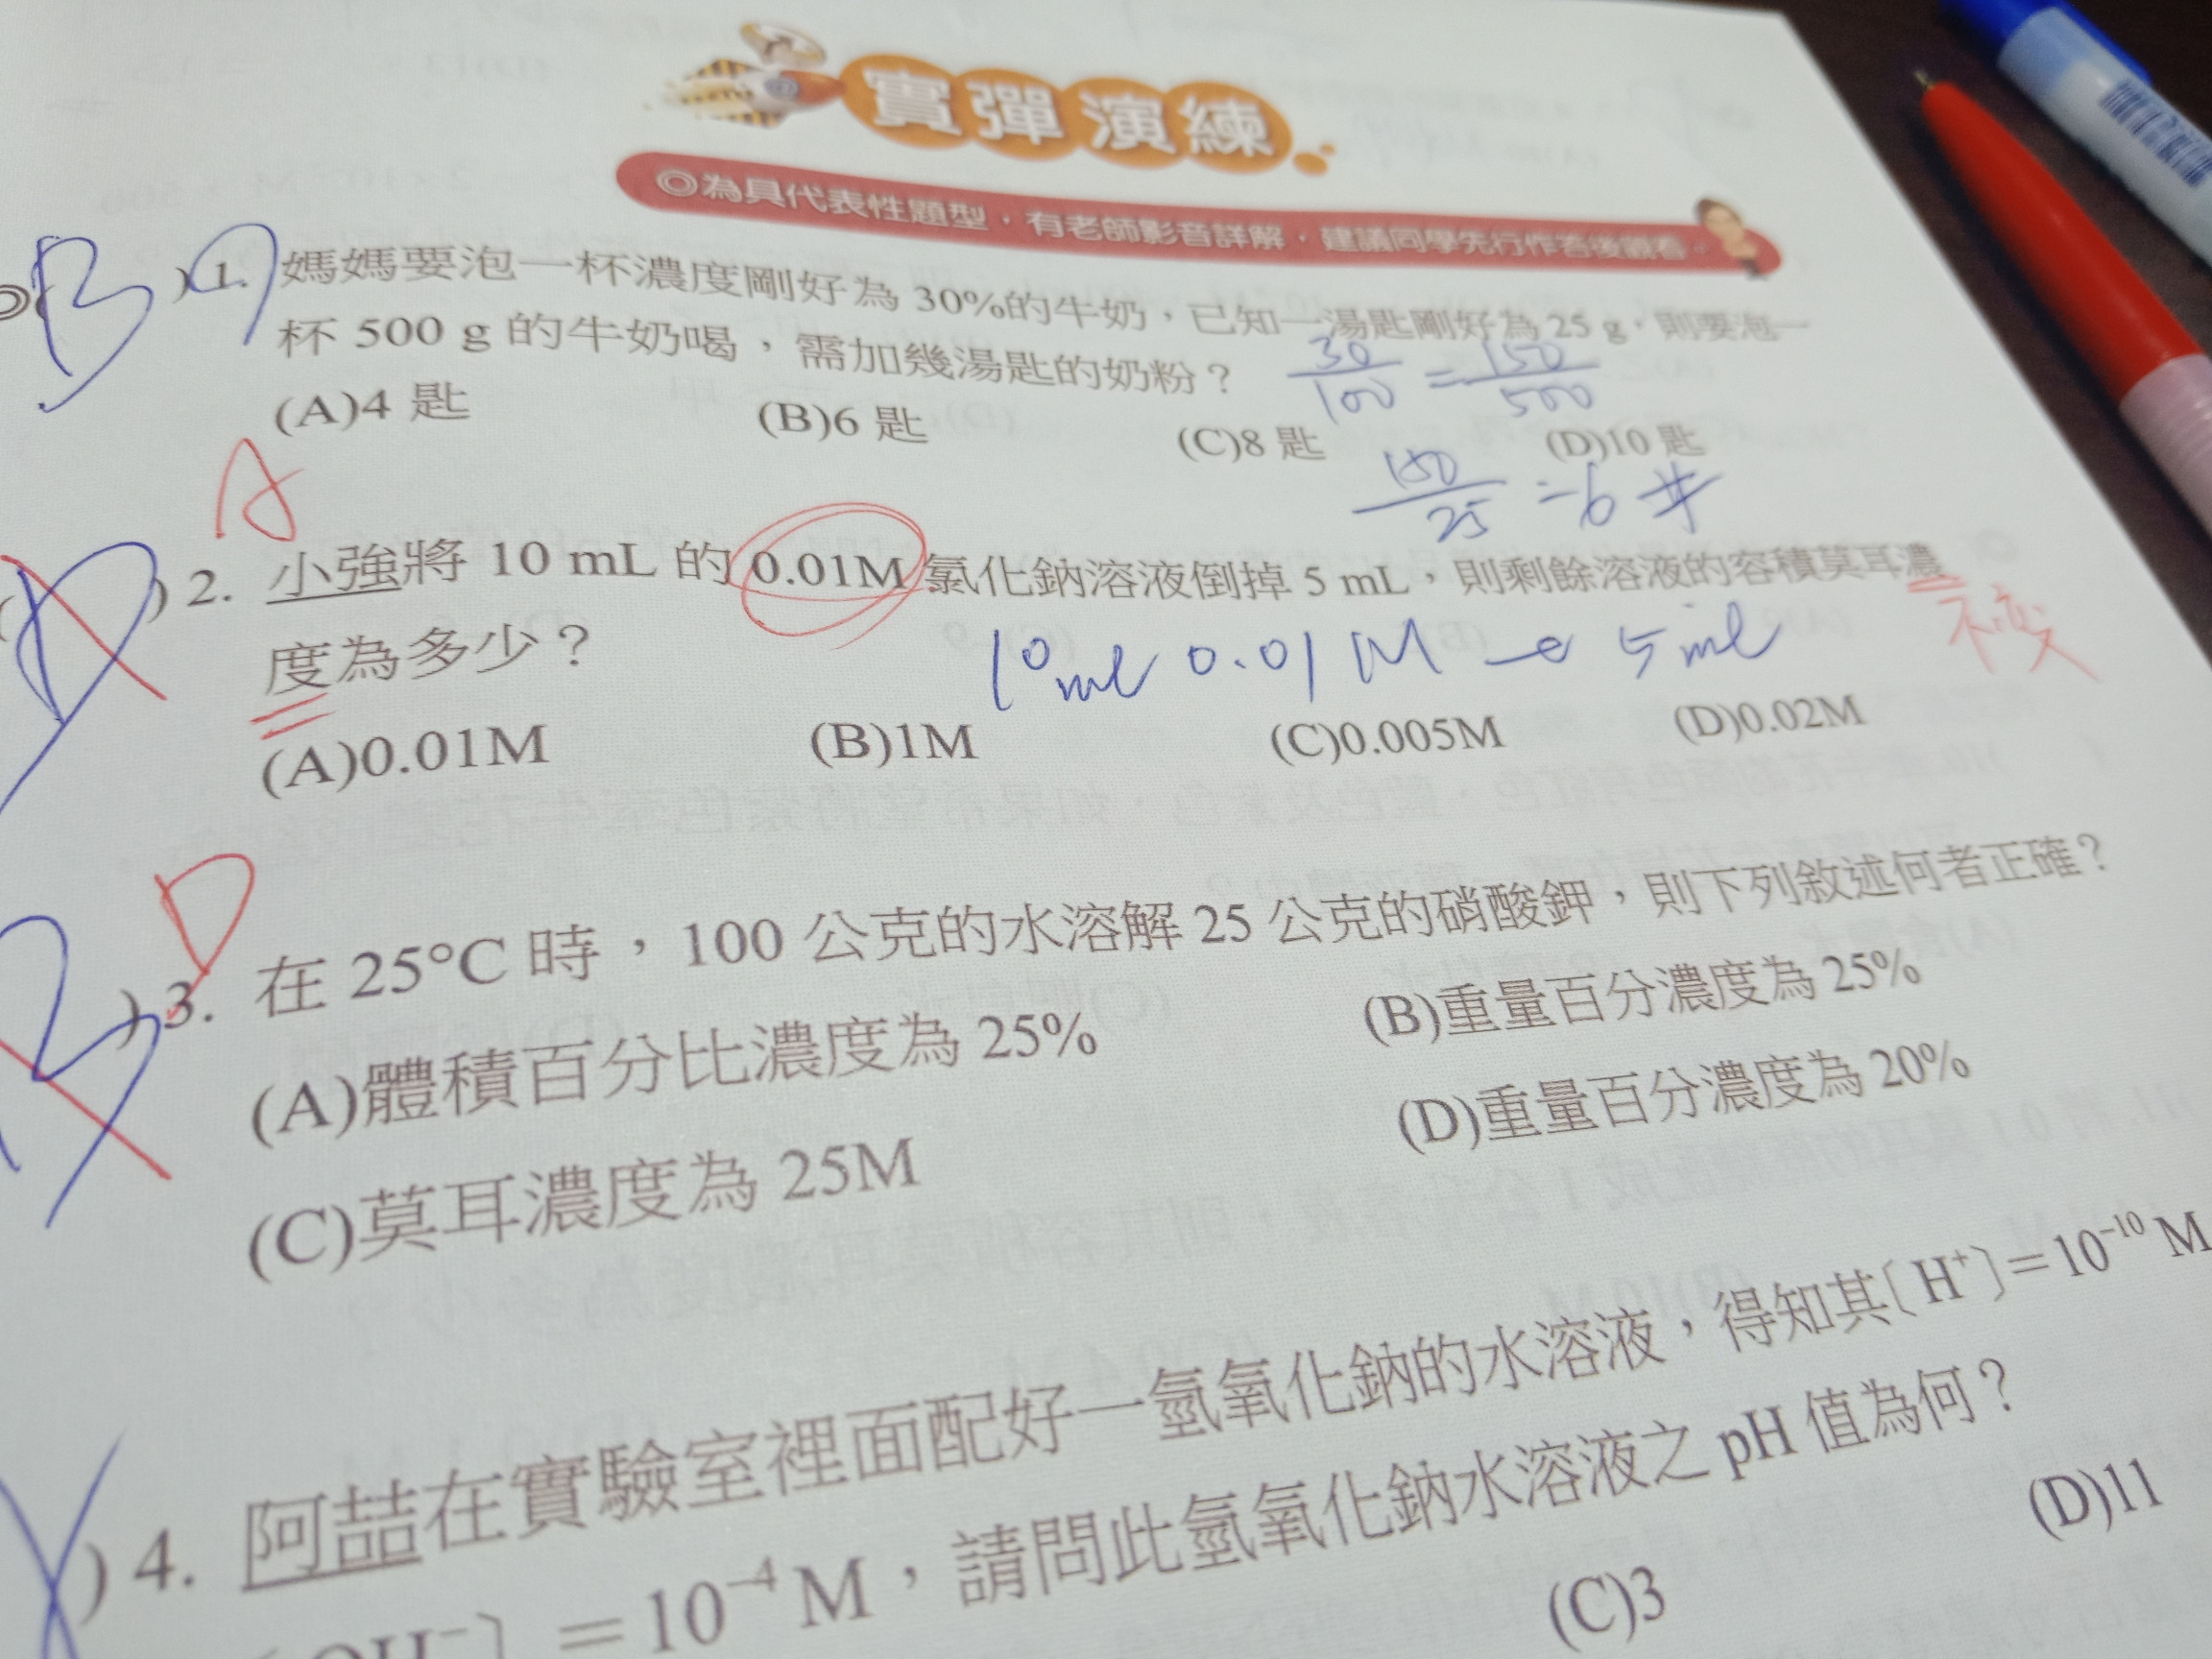 實彈演練
◎為具代表性題型，有老師影音詳解，建議同學先行作答後觀看。
B )1. 媽媽要泡一杯濃度剛好為 30%的牛奶，已知一湯匙剛好為 25 g，則要泡一
杯 500 g 的牛奶喝，需加幾湯匙的奶粉？
30/100 = 150/500
(A)4 匙 (B)6 匙 (C)8 匙 (D)10 匙
150/25 = 6 #
A
D )2. 小強將 10 mL 的 0.01M 氯化鈉溶液倒掉 5 mL，則剩餘溶液的容積莫耳濃
度為多少？
不變
10 ml 0.01 M → 5 ml
(A)0.01M (B)1M (C)0.005M (D)0.02M
D
B )3. 在 25°C 時，100 公克的水溶解 25 公克的硝酸鉀，則下列敘述何者正確？
(A)體積百分比濃度為 25% (B)重量百分濃度為 25%
(C)莫耳濃度為 25M (D)重量百分濃度為 20%
)4. 阿喆在實驗室裡面配好一氫氧化鈉的水溶液，得知其〔H⁺〕＝10⁻¹⁰ M
〔OH⁻〕＝10⁻⁴ M，請問此氫氧化鈉水溶液之 pH 值為何？
(C)3 (D)11